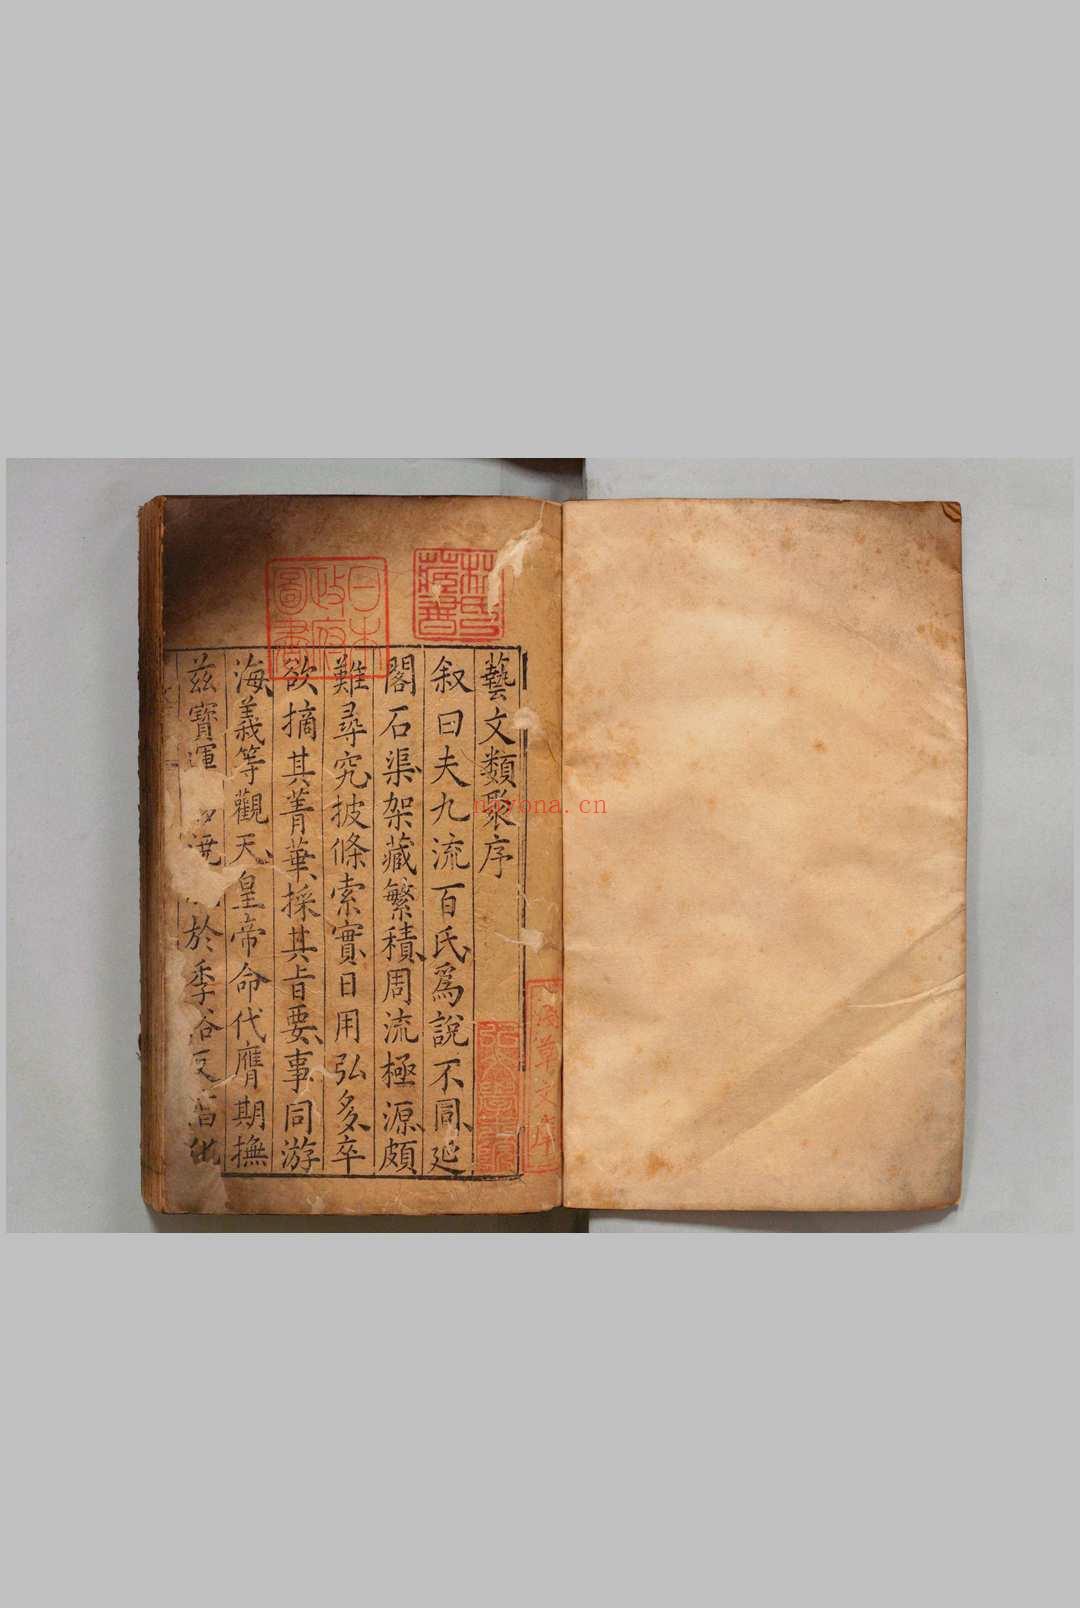 藝文類聚序
叙曰夫九流百氏爲說不同延
閣石渠架藏繁積周流極源頗
難尋究披條索實日用弘多卒
欲摘其菁華採其旨要事同游
海義等觀天皇帝命代膺期撫
茲寶運 澆 於季俗反
林氏藏書
日本政府圖書
淺草文庫
nayona.cn